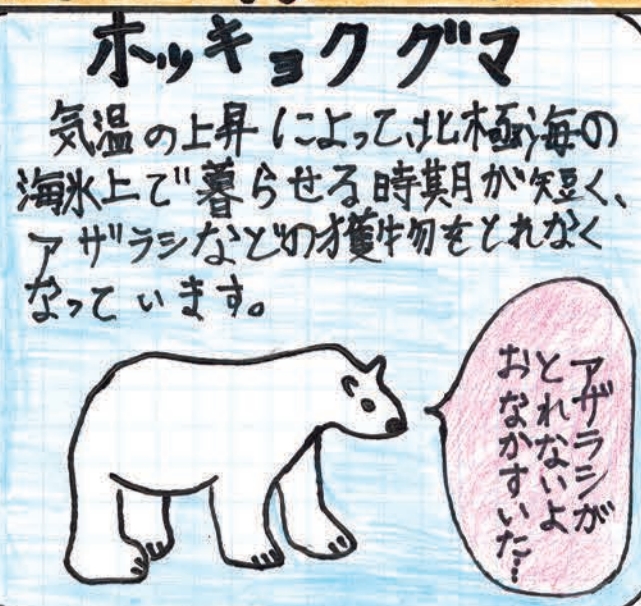 ホッキョクグマ
気温の上昇によって、北極海の
海氷上で暮らせる時期が短く、
アザラシなどの獲物をとれなく
なっています。
アザラシが
とれないよ
おなかすいた…